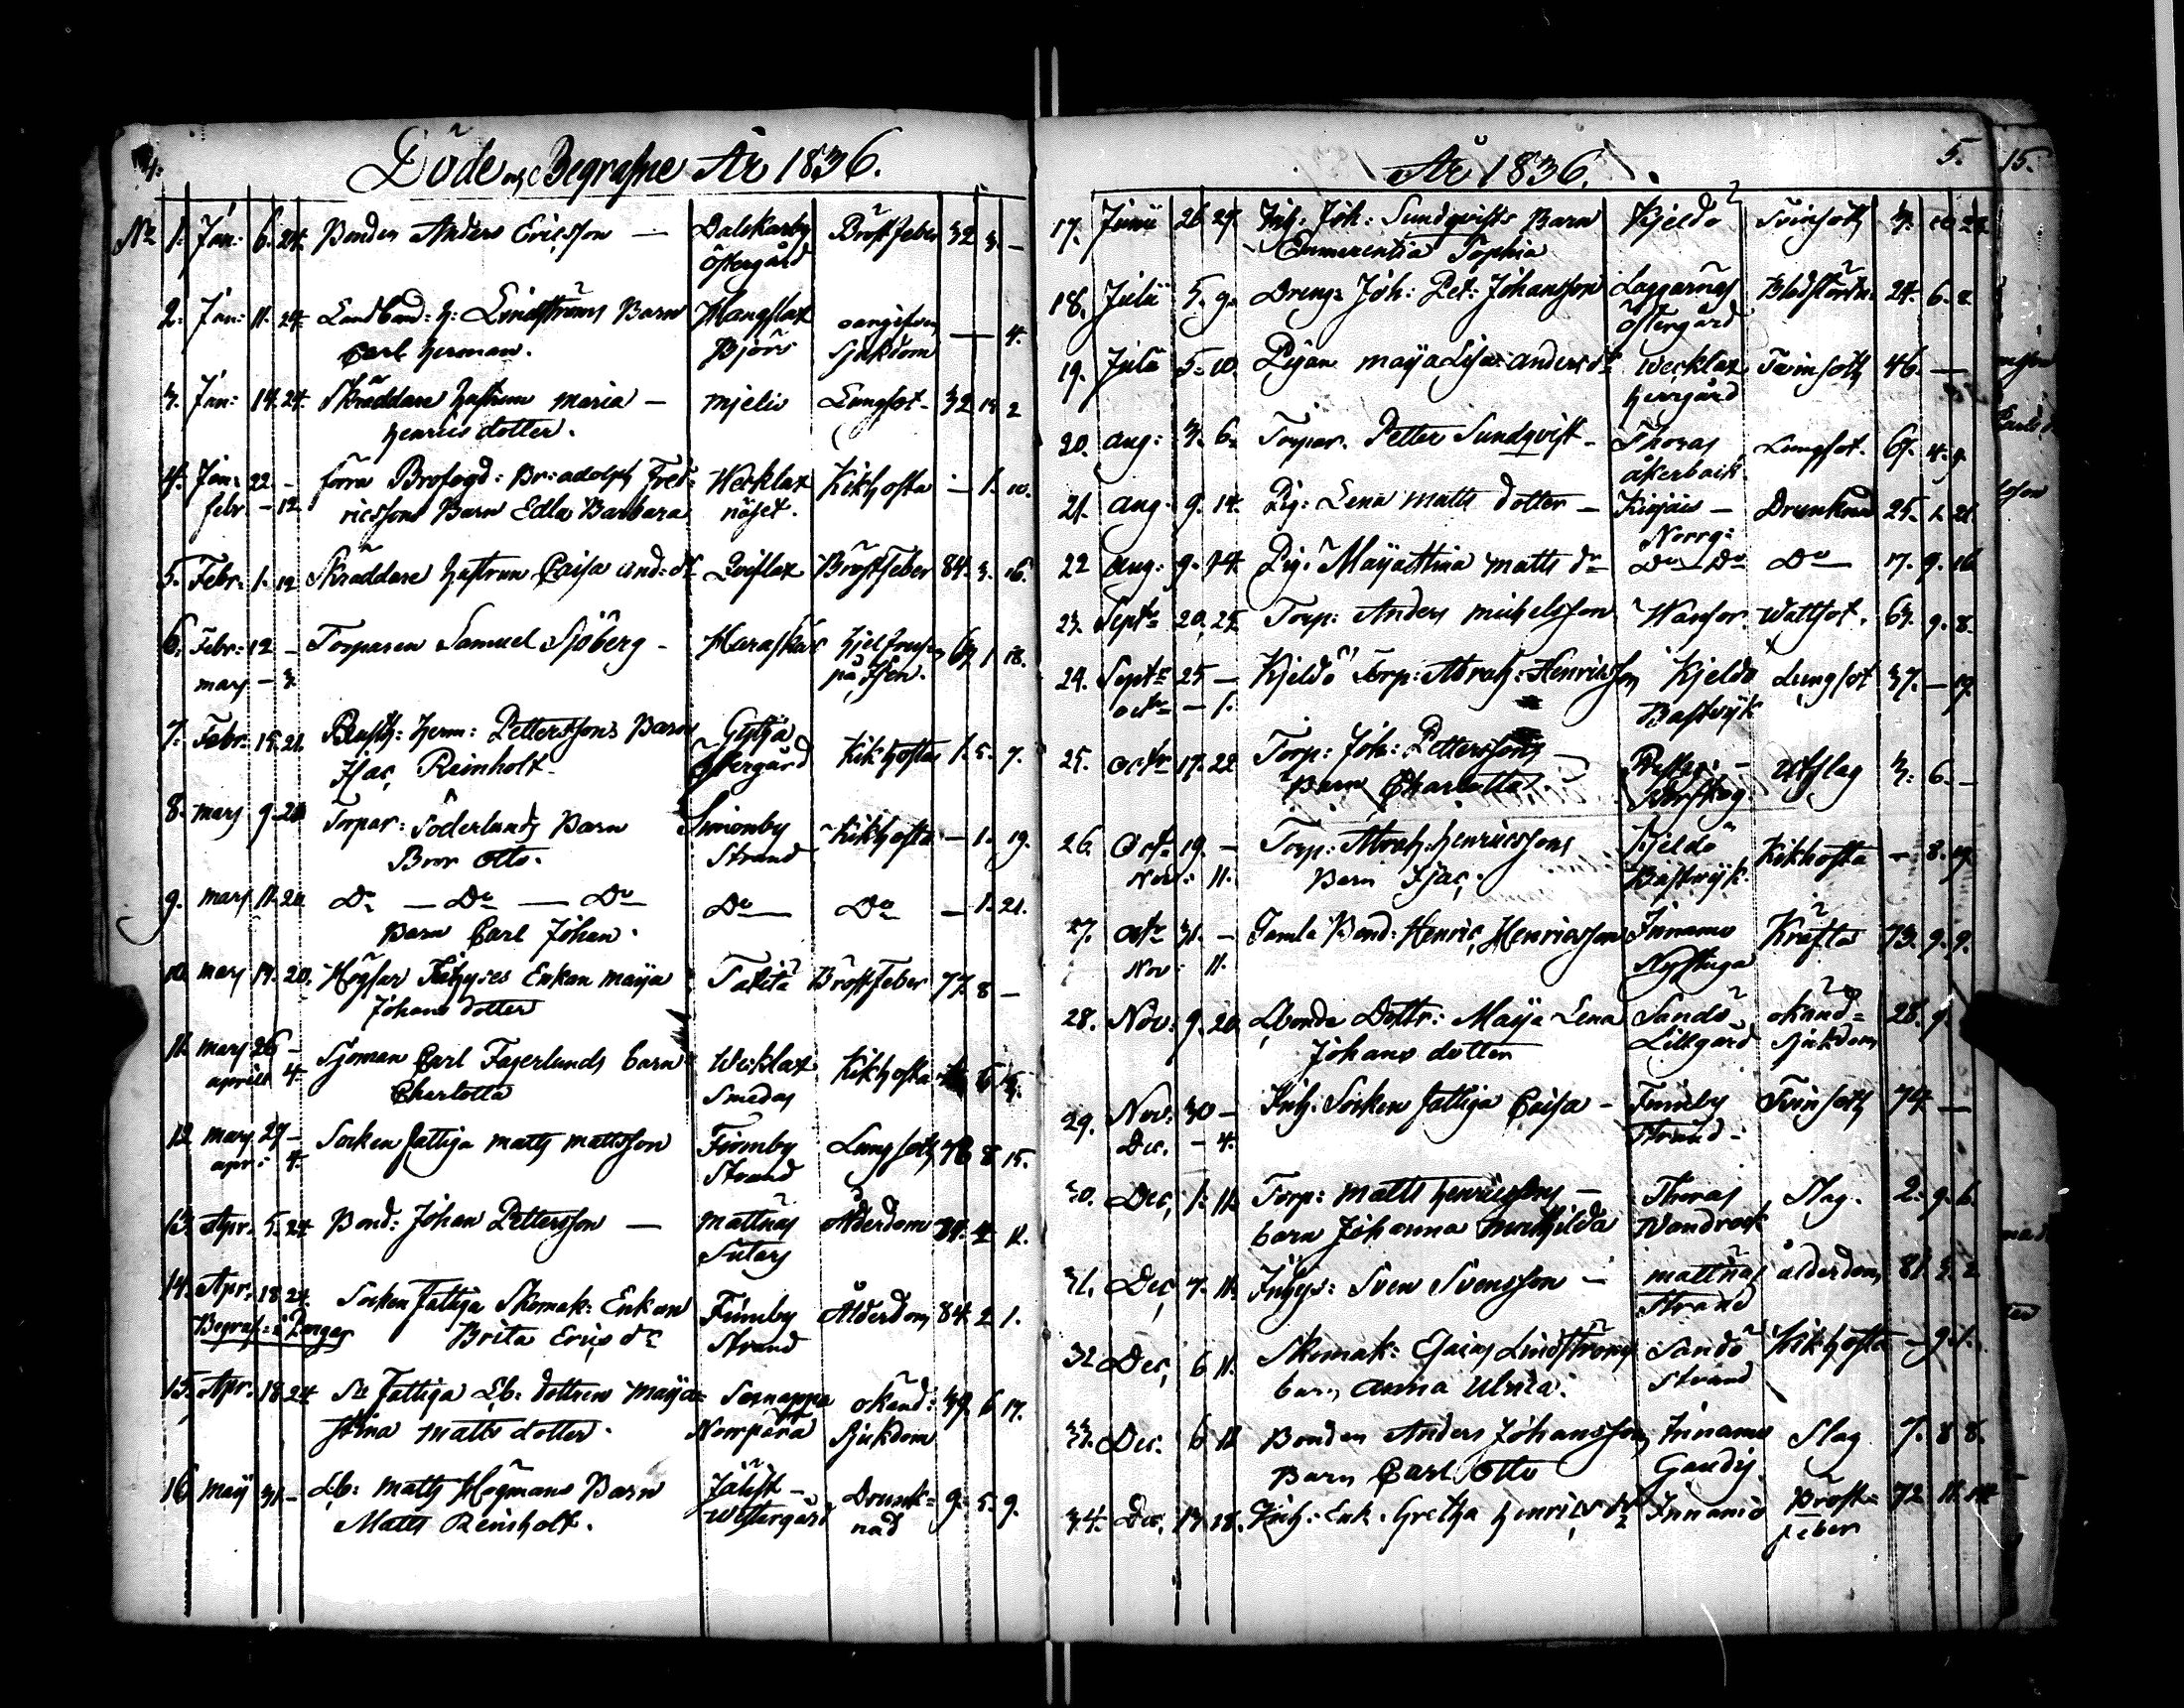 4.
Döde och Begrafne År 1836.
No 1. Jan: 6. 24. Bonden Anders Ericsson — Dalskarby Bröstfeber 32 3. —
Östergård
2. Jan: 11. 24. Landbond: H: Lindströms Barn Mangslax oangifven — 4.
Carl Herman. Björs Sjukdom
3. Jan: 14. 24. Skräddare hustrun Maria — Mjelis Lungsot 32 2
Henrics dotter.
4. Jan: 22. — förra Brofogd: Br: Adolph Fred: Wecklax Kikhosta — 1. 10.
febr — 12 ricssons Barn Edla Barbara näset.
5. Febr: 1. 12 Skräddare hustrun Caisa And: dr Bröstfeber 84. 3. 16.
6. Febr: 12 — Torparen Samuel Sjöberg — Haraskär 1. 18.
mars — 3.
7. Febr: 15. 21. Herm: Pettersons Barn Gyttja Kikhosta 1. 5. 7.
Isac Reinholt. Östergård
8. mars 9. 20 Torpar: Söderlunds Barn Simonby Kikhosta — 1. 19.
Bror Otto. Strand
9. mars 11. 20 Do — Do — Do Do — Do — 1. 21.
Barn Carl Johan.
10. mars 14. 20. Enkan Maija Bröstfeber 77. 8 —
Johans dotter
11. mars 26 — Sjöman Carl Fagerlunds barn Wecklax Kikhosta
aprill 4. Charlotta Smedas
12 mars 27 — Socken fattiga Matts Mattsson Finnby Lungsoth 78 8 15.
apr: 4. Strand
13. Apr. 5. 24 Bond: Johan Pettersson — Mattnäs Ålderdom 84. 4 11.
Sutars
14. Apr. 18 24. Socken Fattiga Skomak: Enkan Finnby Ålderdom 84 2 1.
Begraf: i Borgå Brita Erics dr Strand
15. Apr. 18 24 So Fattiga Lb: dottren Maija Sernappa okänd: 39 6 17.
Stina Matts dotter. Norrpära Sjukdom
16 maij 31 — Lb: Matts Högmans Barn Jälist — Drunk= 9. 5. 9.
Matts Reinholt. Westergård nad
År 1836.
5.
15.
17. Junii 26 29. Inh: Joh: Sundqvists Barn Kjeldö Tvinsoth 3. 10 22
Emmerentia Sophia
18. Julii 5. 9. Dreng: Joh: Pet: Johansson Laggarnäs Blodstörtn: 24. 6. 8.
Östergård
19. Julii 5. 10. Pigan Maija Lisa Anders dr Wecklax Tvinsoth 46. —
herrgård
20. aug: 3. 6. Torpar. Petter Sundqvist — Thoras Lungsot. 67. 4. 9.
åkerback
21. aug. 9. 14. Pig: Lena Matts dotter — Kirjais — Drunknad 25. 1. 21.
Norrg:
22 aug: 9. 14. Pig: Maija Stina Matts dr Do Do Do 17. 9. 16
23. Septr 20. 25. Torp: Anders Michelsson Wansor Wattsot. 63. 9. 8.
24. Septr 25 — Kjeldö Torp: Abrah: Henricsson Kjeldö Lungsot 37. — 19.
octr — 1. Bastvijk
25. octr 17. 22 Torp: Joh: Pettersons — Utslag 3. 6. —
Barn Charlotta
26. Octr 19. — Torp: Abrah: Henricssons Kjeldö Kikhosta — 8. 19.
Nov: 11. Barn Isac. Bastwijk.
27. octr 31. — Gamla Bond: Henric Henricsson Innamo Kräfta 73. 9. 9.
Nov: 11. Nystuga
28. Nov: 9. 20 Lbonde Dottr: Maija Lena Sandö okänd= 28. 9.
Johans dotter Lillgård Sjukdom
29. Nov: 30 — Inh: Socken fattiga Caisa — Finnby Tvinsoth 74. —
Dec. — 4. Strand —
30. Dec, 1. 11. Torp: Matts Henricssons — Thoras Slag. 2. 9. 6.
barn Johanna Mathilda Wandrock
31. Dec, 7. 11. Inhys: Sven Svensson — Mattnäs ålderdom 81 3. 2
Strand
32 Dec, 6 11. Skomak: Esaias Lindströms Sandö Kikhosta — 9. 1.
barn Anna Ulrica. Strand
33. Dec. 6 11 Bonden Anders Johansson Innamo Slag 7. 8 8.
Barn Carl Otto Gaudis
34. Dec. 13 18. Inh: Enk. Gretha Henrics dr Innamo Bröst= 72 11. 14
feber